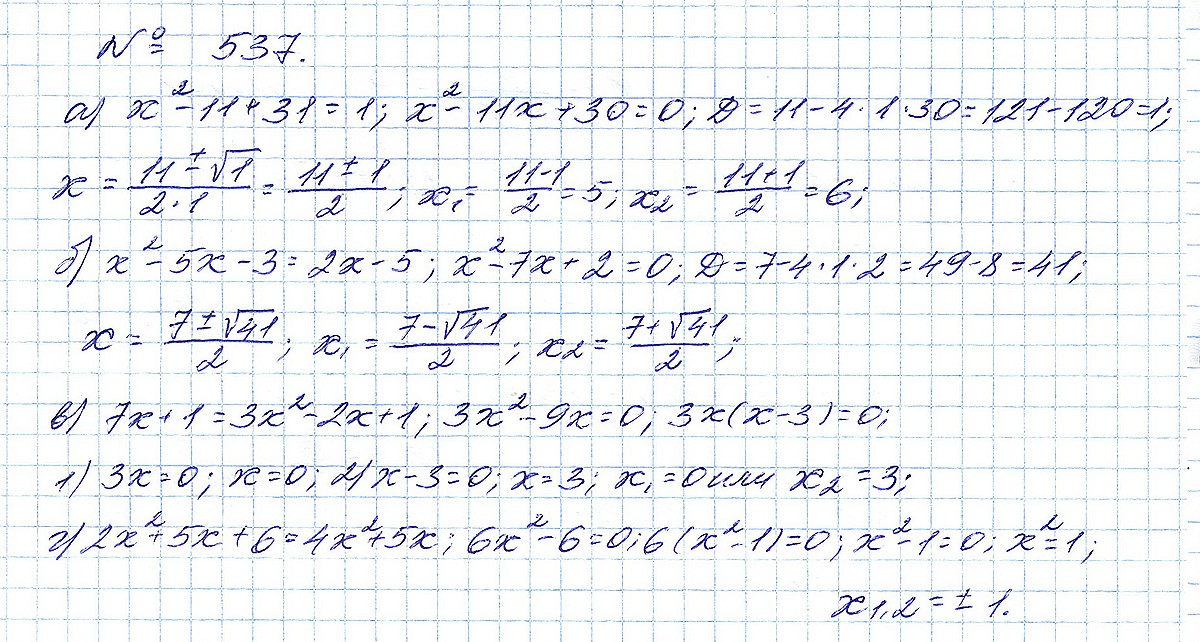 № 537.
а) x² - 11 + 31 = 1; x² - 11x + 30 = 0; Д = 11 - 4 · 1 · 30 = 121 - 120 = 1;
x = (11 ± √1)/(2·1) = (11 ± 1)/2; x₁ = (11-1)/2 = 5; x₂ = (11+1)/2 = 6;
б) x² - 5x - 3 = 2x - 5; x² - 7x + 2 = 0; Д = 7 - 4 · 1 · 2 = 49 - 8 = 41;
x = (7 ± √41)/2; x₁ = (7 - √41)/2; x₂ = (7 + √41)/2;
в) 7x + 1 = 3x² - 2x + 1; 3x² - 9x = 0; 3x(x - 3) = 0;
1) 3x = 0; x = 0; 2) x - 3 = 0; x = 3; x₁ = 0 или x₂ = 3;
г) 2x² + 5x + 6 = 4x² + 5x; 6x² - 6 = 0; 6(x² - 1) = 0; x² - 1 = 0; x² = 1;
x₁,₂ = ± 1.